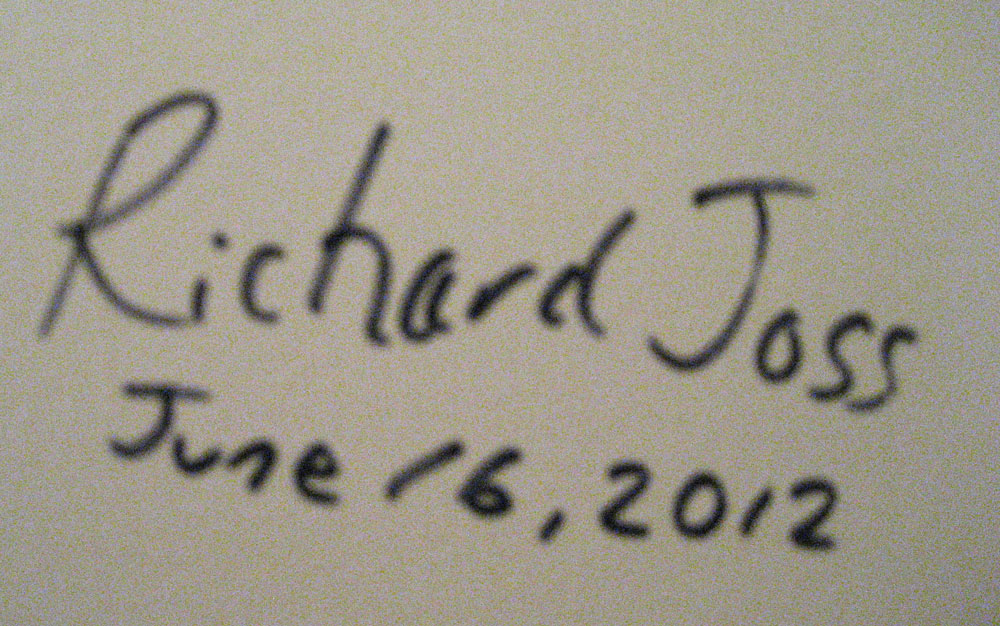 Richard Joss
June 16, 2012